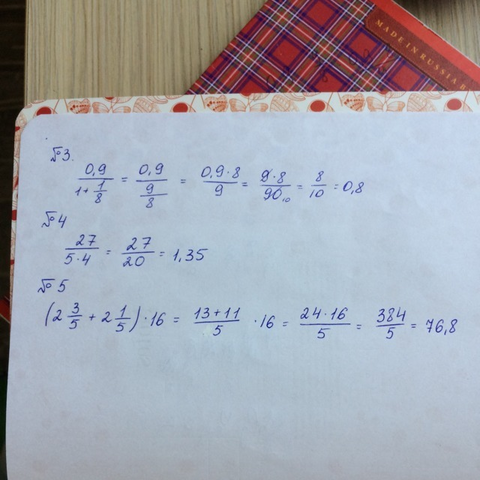 MADE IN RUSSIA
№3.
0,9 / (1 + 1/8) = 0,9 / (9/8) = 0,9·8 / 9 = 9·8 / 90₁₀ = 8/10 = 0,8
№4
27 / 5·4 = 27/20 = 1,35
№5
(2 3/5 + 2 1/5)·16 = 13+11 / 5 ·16 = 24·16 / 5 = 384/5 = 76,8